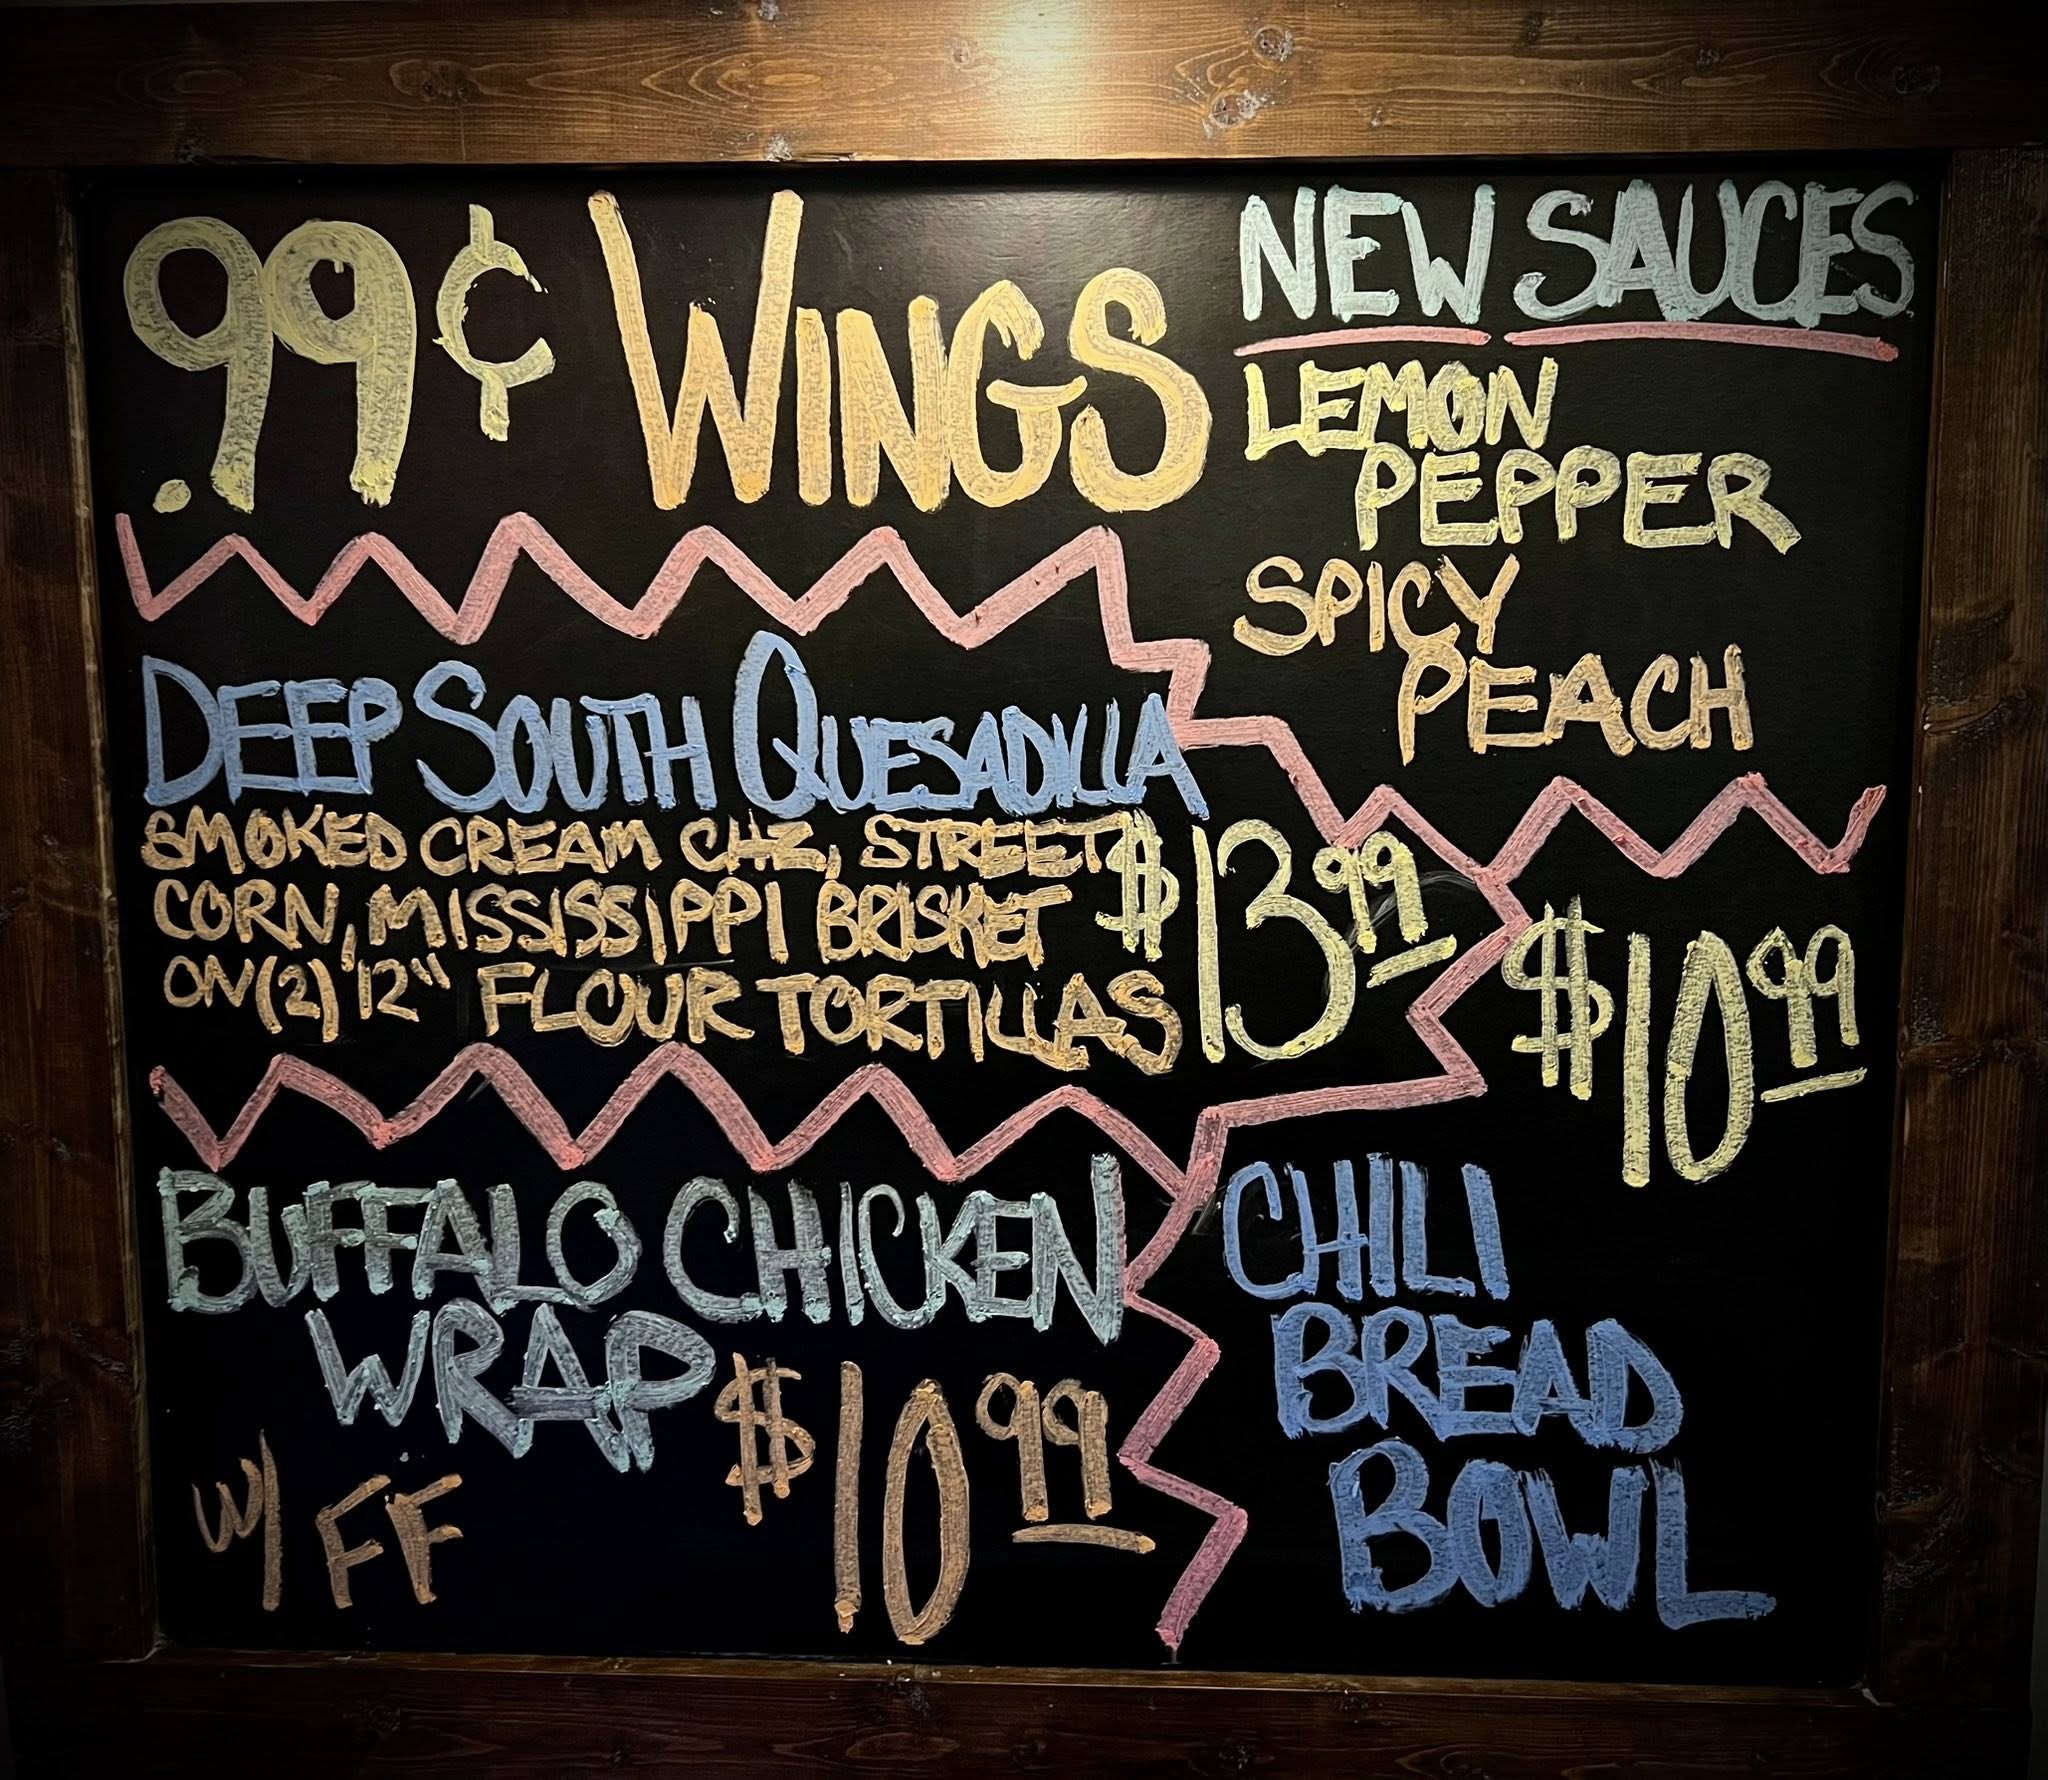 .99¢ WINGS
NEW SAUCES
LEMON
PEPPER
SPICY
PEACH
DEEP SOUTH QUESADILLA
SMOKED CREAM CHZ, STREET
CORN, MISSISSIPPI BRISKET
ON (2) 12" FLOUR TORTILLAS
$13.99
BUFFALO CHICKEN
WRAP
W/ FF
$10.99
$10.99
CHILI
BREAD
BOWL